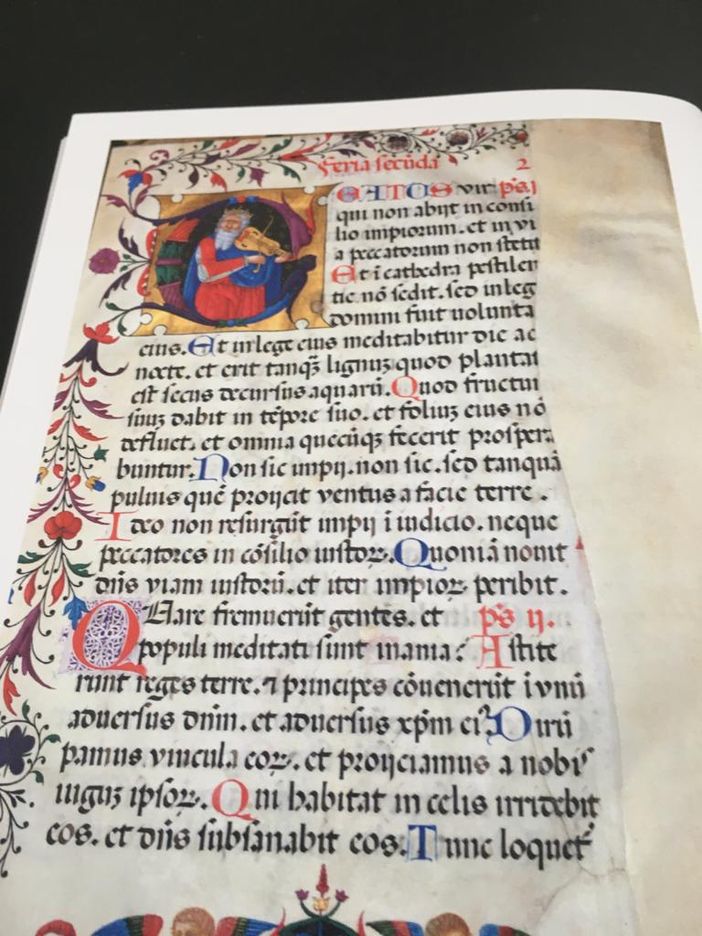 Feria secūda 2
BEATUS vir ps. j
qui non abijt in consi
lio impiorum. et in vi
a peccatorum non stetit
Et ī cathedra pestilen
tie nō sedit. sed in leg
domini fuit volunta
eius. Et in lege eius meditabitur die ac
nocte. et erit tanqȝ lignuȝ quod plantat
est secus decursus aquarū. Quod fructu
suuȝ dabit in tēpore suo. et foliuȝ eius nō
defluet. et omnia quecūqȝ fecerit prospera
buntur. Non sic impij. non sic. sed tanquā
puluis quē proijcit ventus a facie terre.
Ideo non resurgūt impij ī iudicio. neque
peccatores in cōsilio iustoꝝ. Quoniā nouit
dn̄s viam iustorū. et iter impioꝝ peribit.
Quare fremuerūt gentes. et ps ij.
populi meditati sunt inania: Astite
runt reges terre. ⁊ principes cōuenerūt ī vnū
aduersus dnm̄. et aduersus xp̄m ei⁹. Dirū
pamus vincula eoꝝ. et proijciamus a nobis
iuguȝ ipsoꝝ. Qui habitat in celis irridebit
eos. et dn̄s subsanabit eos. Tunc loquet᷑